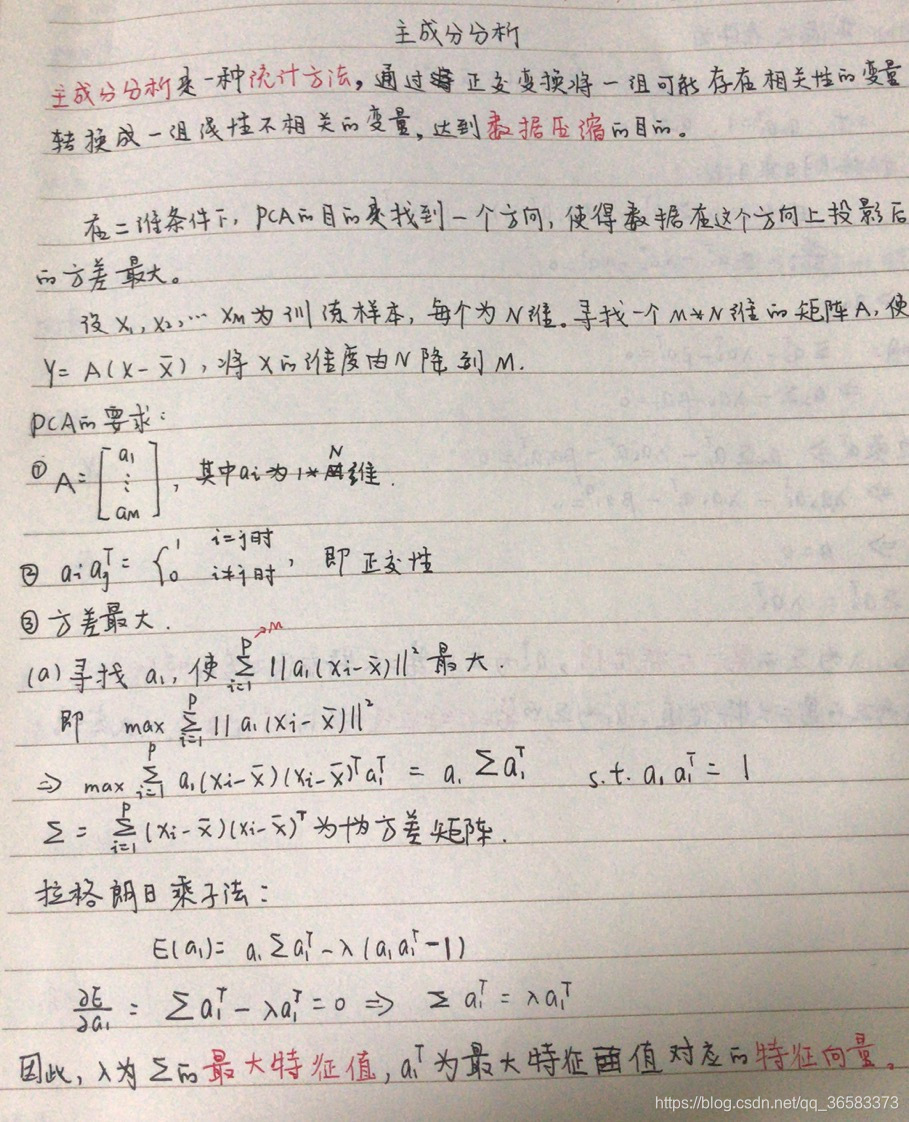 主成分分析
主成分分析是一种统计方法，通过正交变换将一组可能存在相关性的变量
转换成一组线性不相关的变量，达到数据压缩的目的。
在二维条件下，PCA的目的是找到一个方向，使得数据在这个方向上投影后
的方差最大。
设 x₁, x₂, … xM 为训练样本，每个为N维。寻找一个 M*N维的矩阵A，使
Y= A(x-x̄)，将X的维度由N降到M.
PCA的要求：
① A=[a₁ ⋮ aM]，其中aᵢ为 1*N维.
② aᵢaⱼᵀ = {1 i=j时 0 i≠j时，即正交性
③ 方差最大.
(a) 寻找 a₁，使 Σᵢ₌₁ᴾ→M ||a₁(xᵢ-x̄)||² 最大.
即 max Σᵢ₌₁ᴾ ||a₁(xᵢ-x̄)||²
⇒ max Σᵢ₌₁ᴾ a₁(xᵢ-x̄)(xᵢ-x̄)ᵀa₁ᵀ = a₁Σa₁ᵀ s.t. a₁a₁ᵀ = 1
Σ = Σᵢ₌₁ᴾ (xᵢ-x̄)(xᵢ-x̄)ᵀ 为协方差矩阵.
拉格朗日乘子法：
E(a₁)= a₁Σa₁ᵀ - λ(a₁a₁ᵀ-1)
∂E/∂a₁ = Σa₁ᵀ - λa₁ᵀ = 0 ⇒ Σa₁ᵀ = λa₁ᵀ
因此，λ为Σ的最大特征值，a₁ᵀ为最大特征值对应的特征向量。
https://blog.csdn.net/qq_36583373